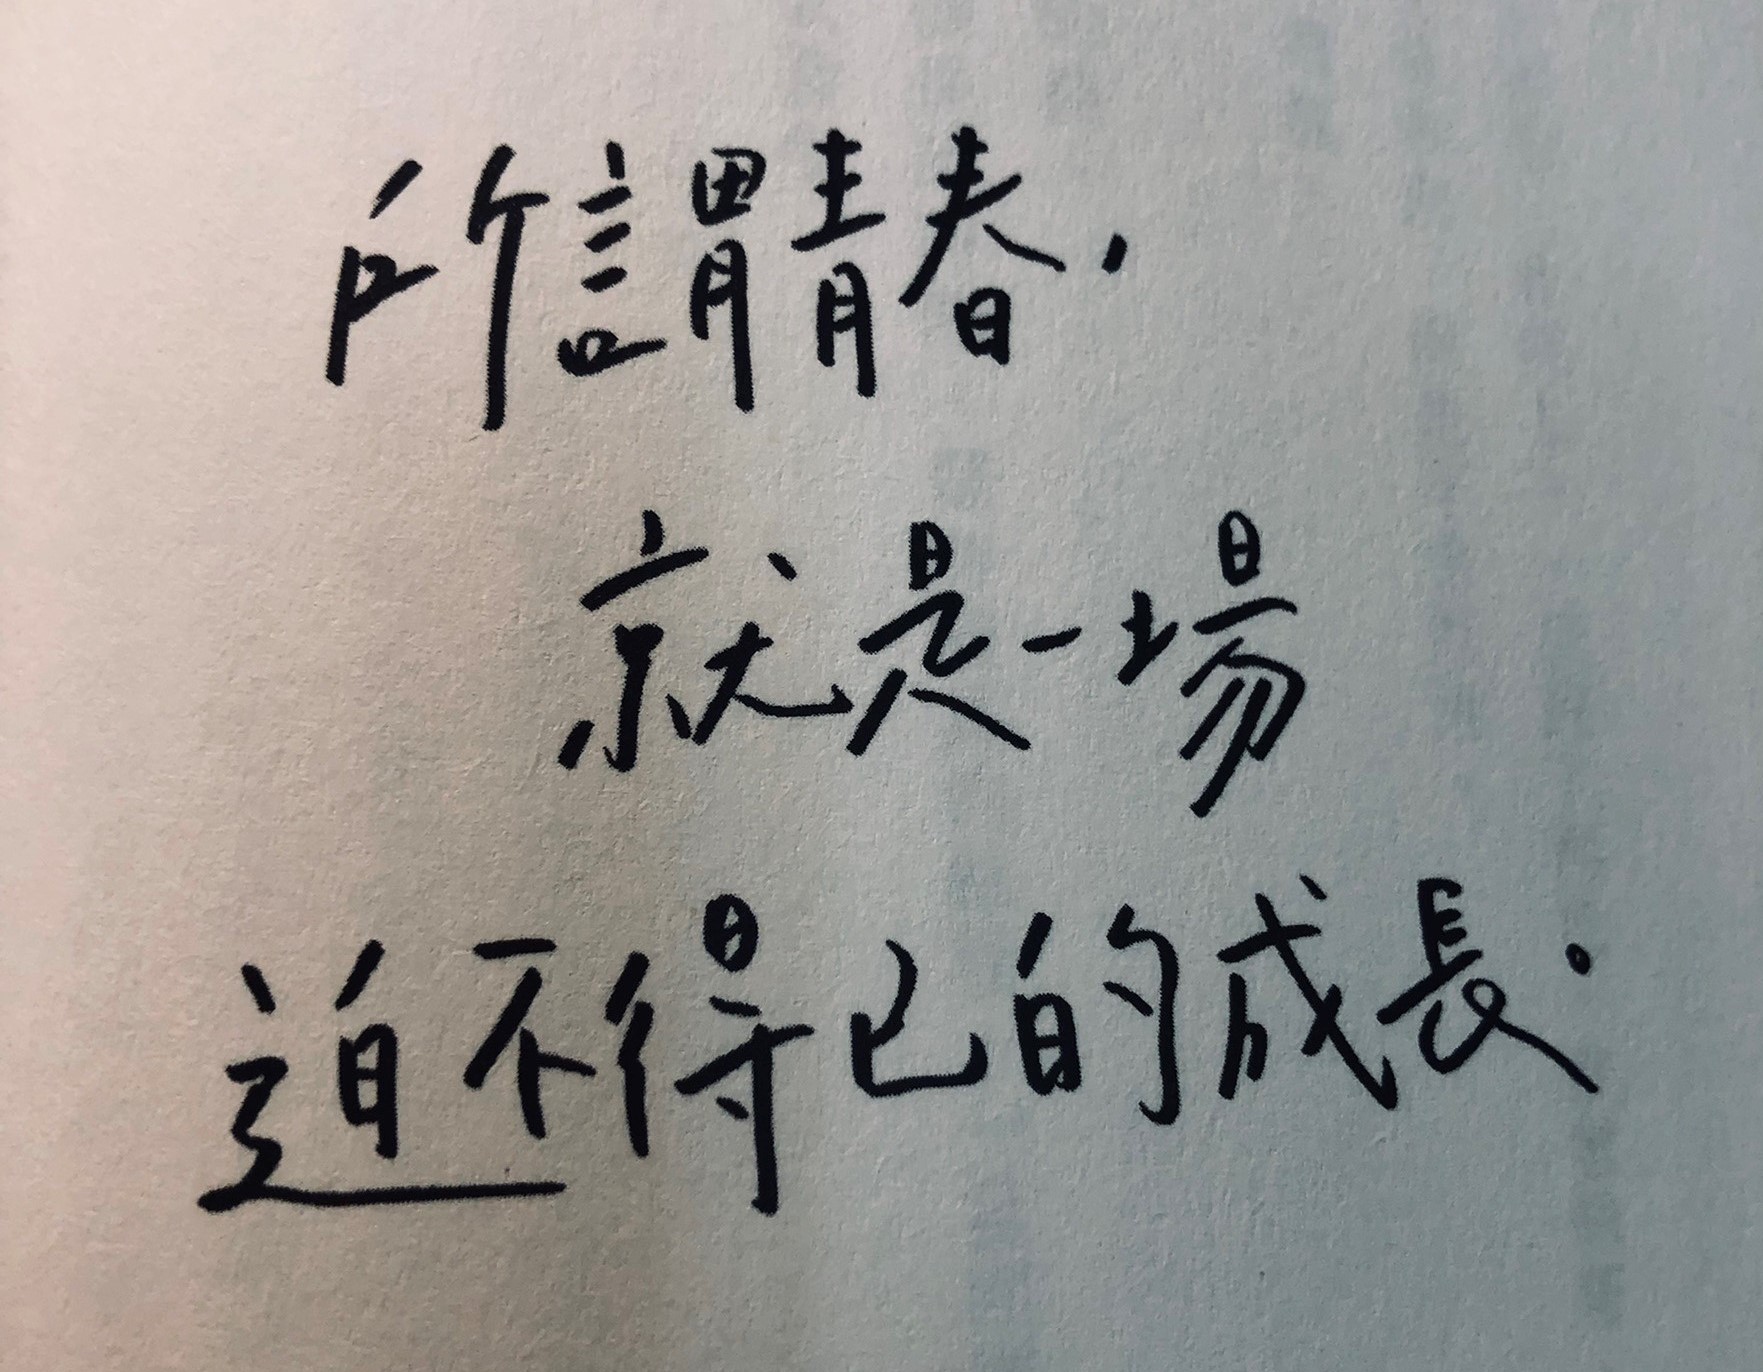 所謂青春，
就是一場
迫不得已的成長。